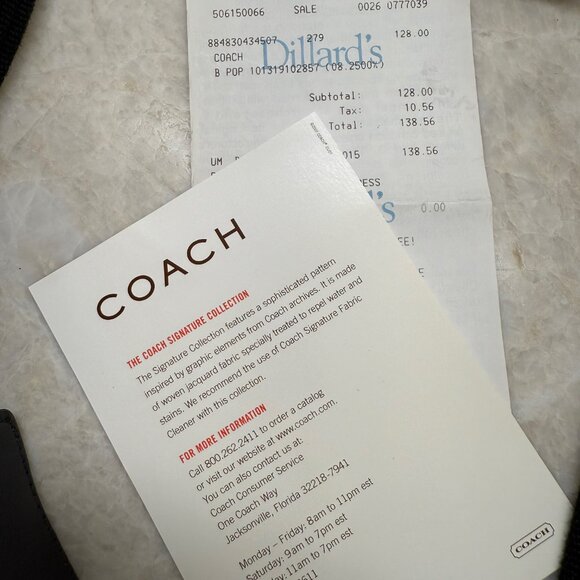 506150066 SALE 0026 0777039
884830434507 279 128.00
COACH
Dillard's
B POP 101319102857 (08.2500%)
Subtotal: 128.00
Tax: 10.56
Total: 138.56
UM 015 138.56
ESS
's
0.00
EE!
COACH
THE COACH SIGNATURE COLLECTION
The Signature Collection features a sophisticated pattern
inspired by graphic elements from Coach archives. It is made
of woven jacquard fabric specially treated to repel water and
stains. We recommend the use of Coach Signature Fabric
Cleaner with this collection.
FOR MORE INFORMATION
Call 800.262.2411 to order a catalog
or visit our website at www.coach.com.
You can also contact us at:
Coach Consumer Service
One Coach Way
Jacksonville, Florida 32218-7941
Monday – Friday: 8am to 11pm est
Saturday: 9am to 7pm est
11am to 7pm est
COACH